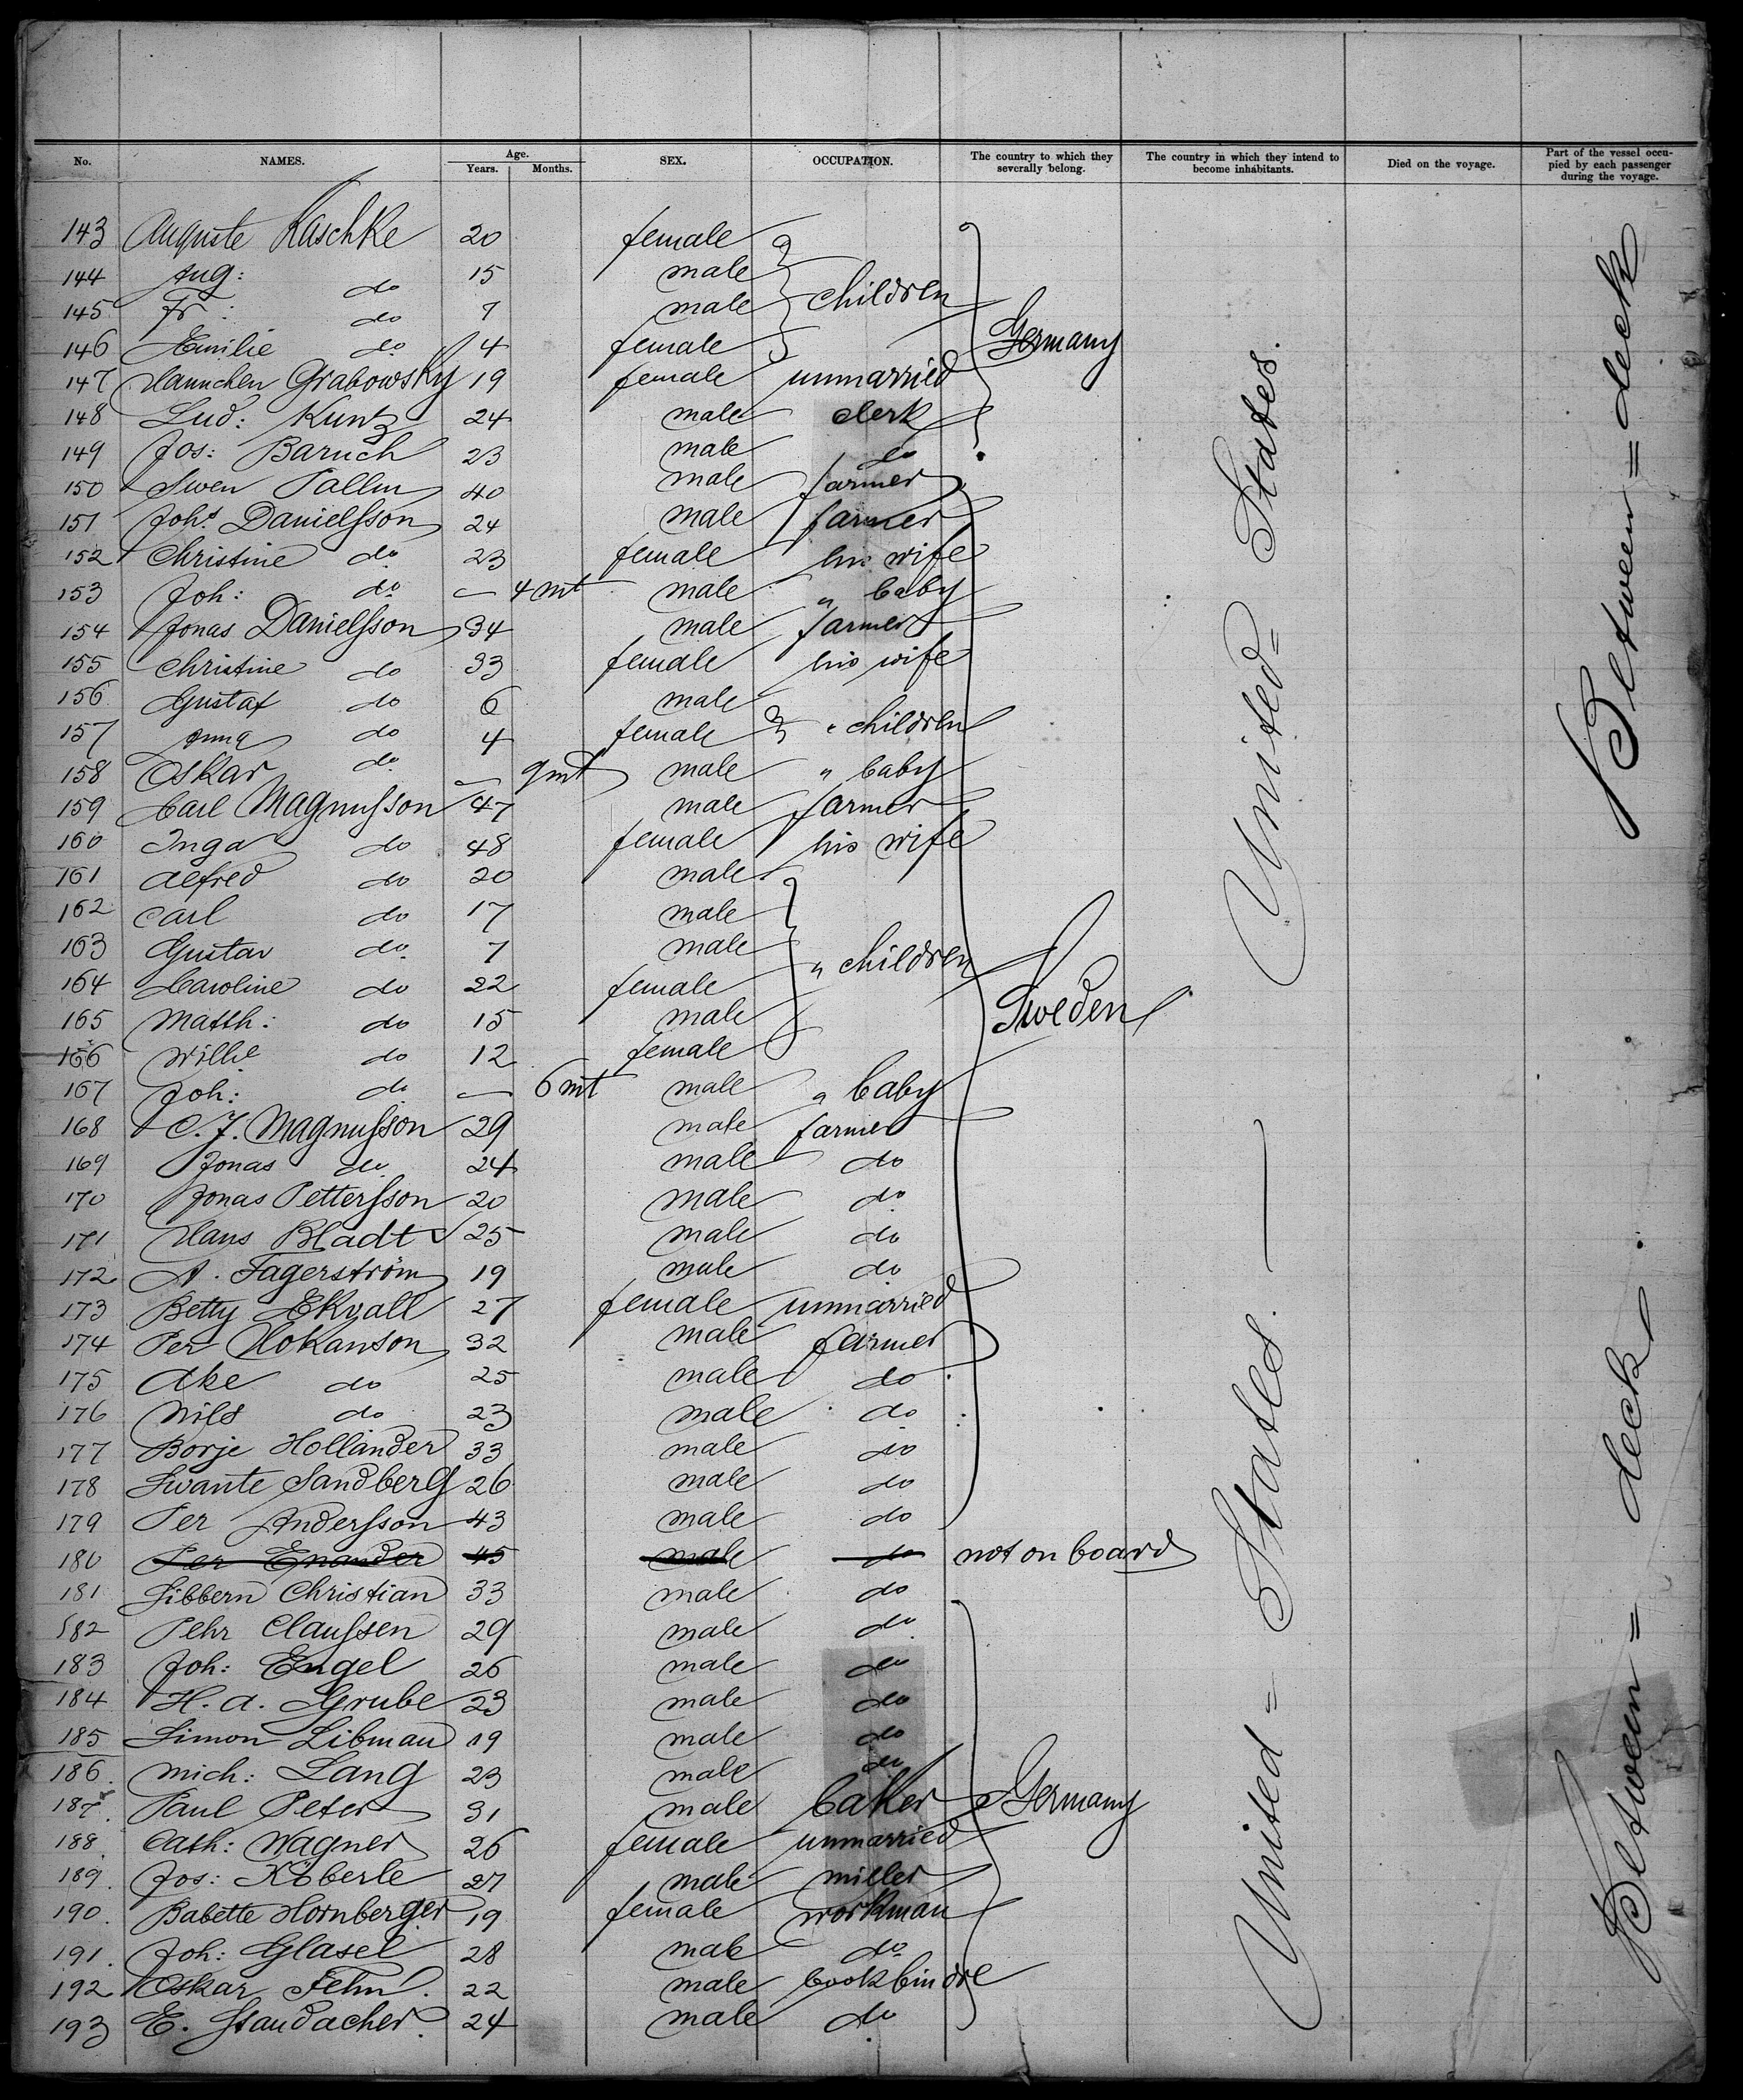 No. NAMES. Age. Years. Months. SEX. OCCUPATION. The country to which they severally belong. The country in which they intend to become inhabitants. Died on the voyage. Part of the vessel occupied by each passenger during the voyage.
143 Auguste Raschke 20 female
144 Aug: do 15 male
145 Fr: do 7 male children
146 Emilie do 4 female Germany
147 Hannchen Grabowsky 19 female unmarried
148 Lud: Kuntz 24 male clerk
149 Jos: Baruch 23 male do
150 Swen Pallm 40 male farmer
151 Johs Danielsson 24 male farmer
152 Christine do 23 female his wife
153 Joh: do — 4 mt male " baby
154 Jonas Danielsson 34 male farmer
155 Christine do 33 female his wife
156 Gustaf do 6 male
157 Anna do 4 female " children
158 Oskar do — 9 mt male " baby
159 Carl Magnusson 47 male farmer
160 Inga do 48 female his wife
161 Alfred do 20 male
162 Carl do 17 male
163 Gustav do 7 male " children
164 Caroline do 22 female
165 Matth: do 15 male Sweden
166 Wilhe do 12 female
167 Joh: do — 6 mt male " baby
168 C. J. Magnusson 29 male farmer
169 Jonas do 24 male do
170 Jonas Pettersson 20 male do
171 Hans Bladt 25 male do
172 A. Fagerström 19 male do
173 Betty Ekvall 27 female unmarried
174 Per Hokanson 32 male farmer
175 Ake do 25 male do
176 Nils do 23 male do
177 Borje Hollander 33 male do
178 Swante Sandberg 26 male do
179 Per Andersson 43 male do
180 Per Enander 45 male do not on board
181 Sibbern Christian 33 male do
182 Pehr Claussen 29 male do
183 Joh: Engel 26 male do
184 H. A. Grube 23 male do
185 Simon Libman 19 male do
186 Mich: Lang 23 male do
187 Paul Peter 31 male baker Germany
188 Cath: Wagner 26 female unmarried
189 Jos: Köberle 27 male miller
190 Babette Hornberger 19 female workman
191 Joh: Glasel 28 male do
192 Oskar Fehn 22 male bookbindre
193 E. Staudacher 24 male do
United = States.
United = States. —
Between = deck
Between = deck